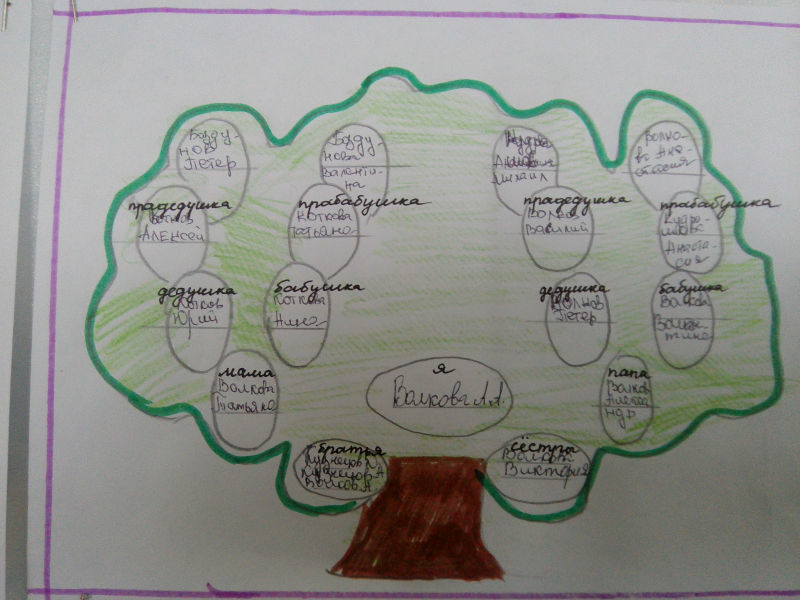 Бозду-
нов
Петер
Бозду-
нова
Валенти-
на
Михаил
Волко-
ва Ана-
стасия
прадедушка
Котков
Алексей
прабабушка
Коткова
Татьяна
прадедушка
Волков
Василий
прабабушка
Анаста-
сия
дедушка
Котков
Юрий
бабушка
Коткова
Нина
дедушка
Волков
Петер
бабушка
Волкова
Вален-
тина
мама
Волкова
Татьяна
я
Волкова А.А.
папа
Волков
Алекса
ндр
братья
Кузнецов
Кузнецов А
Волков А.
сёстры
Волкова
Виктория